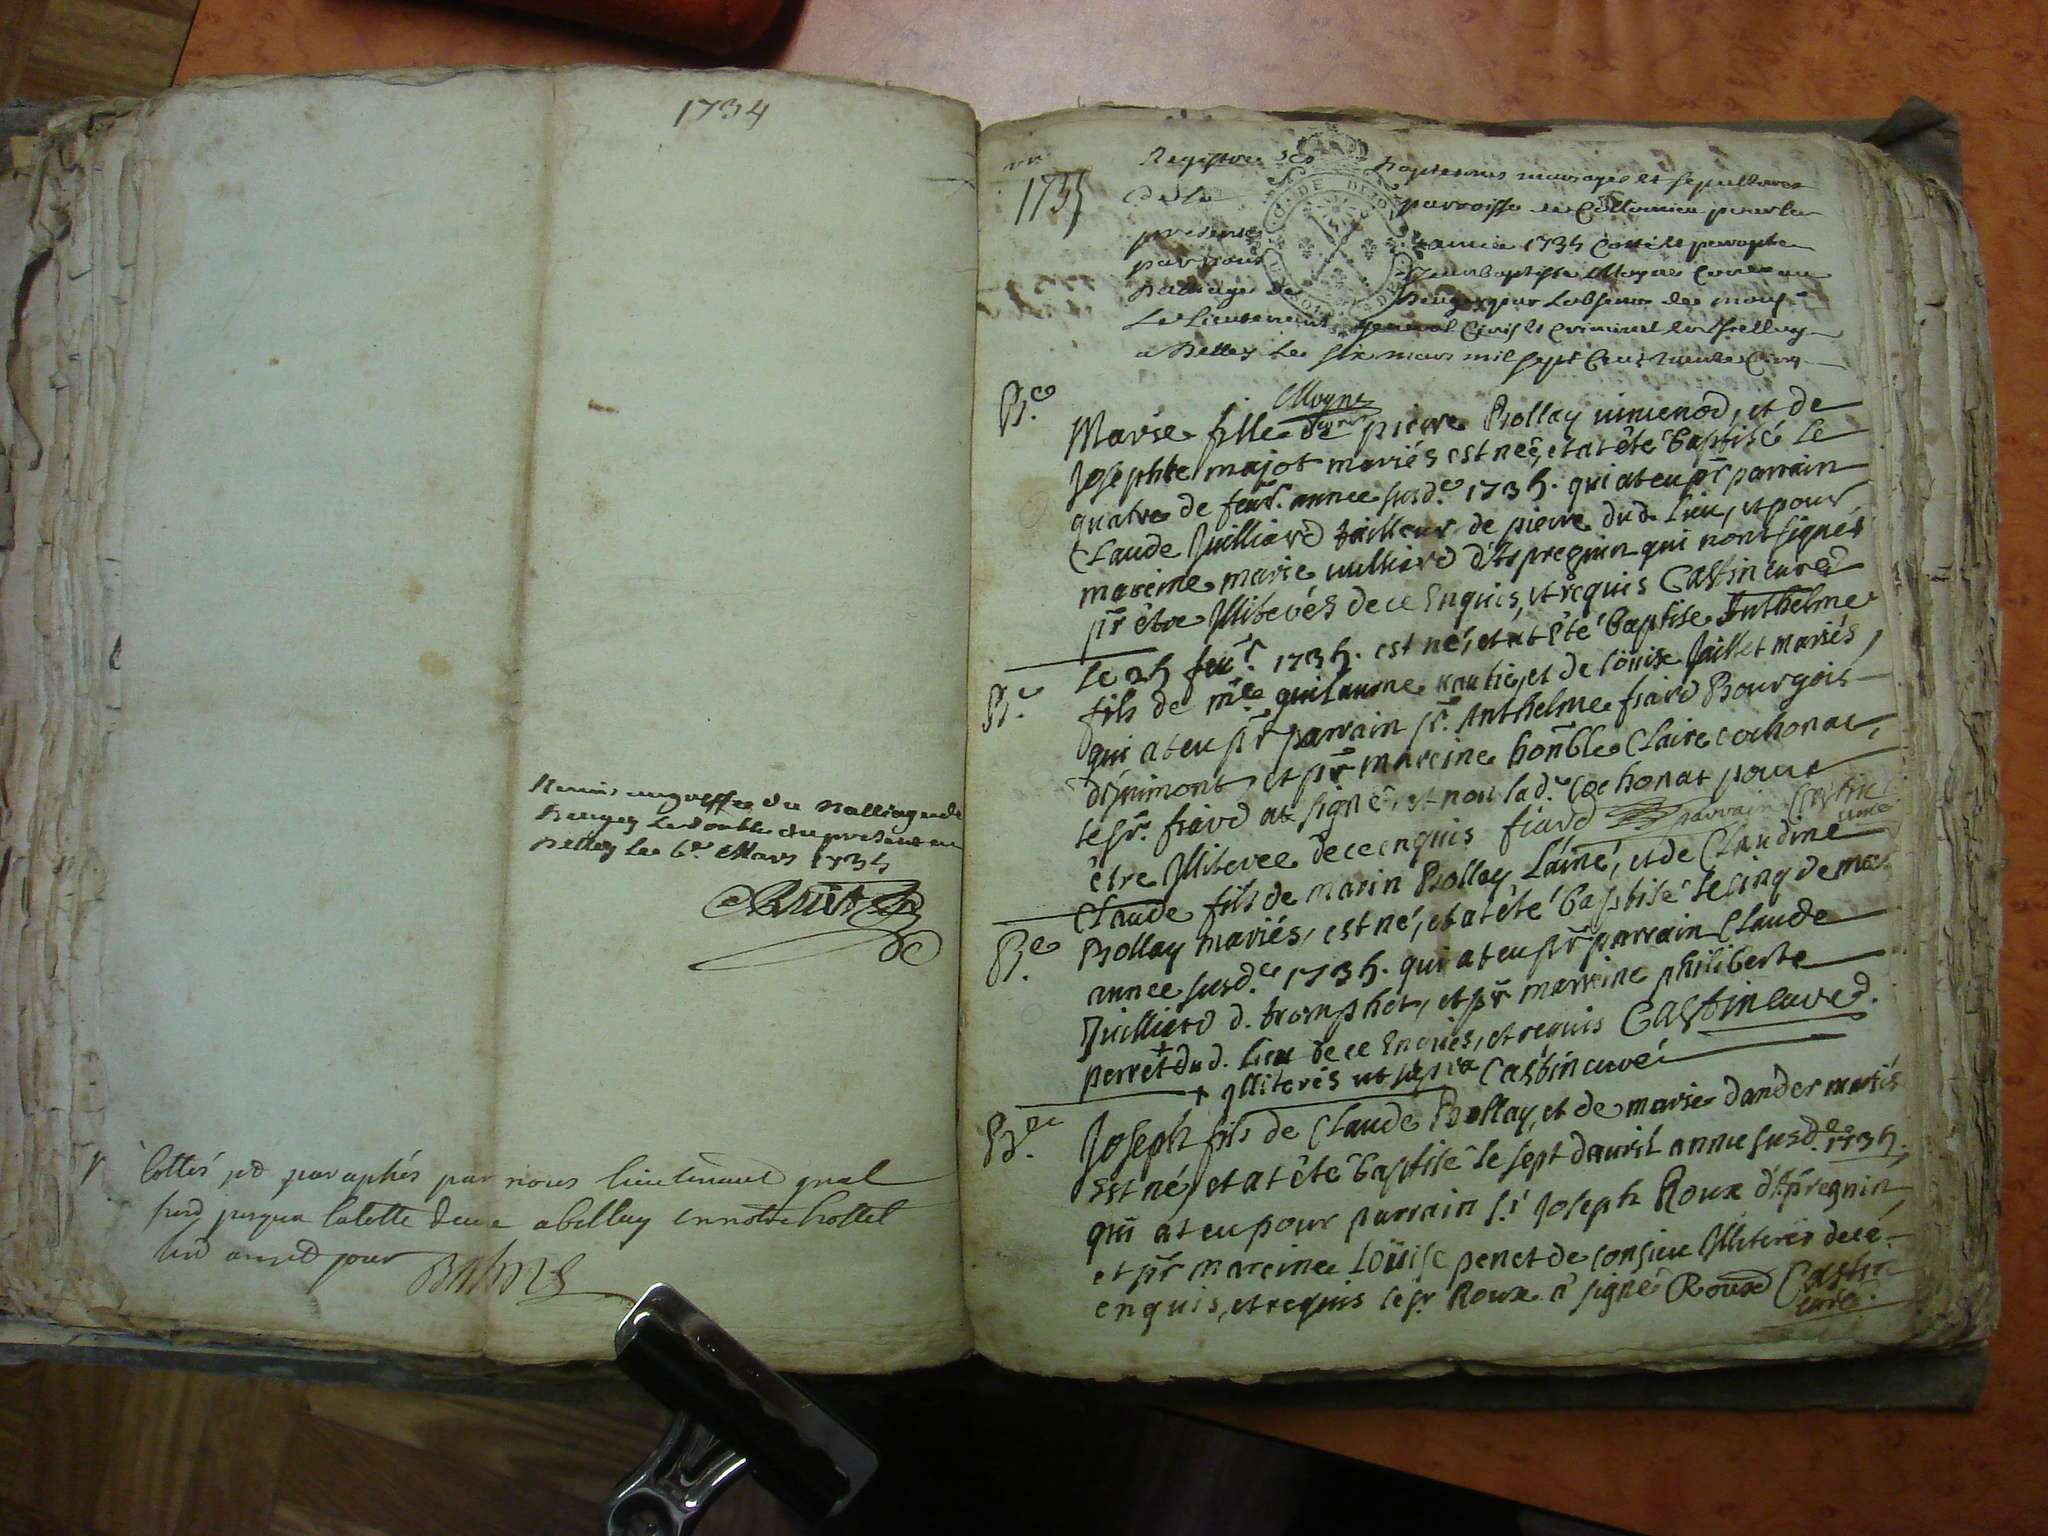 1734
Remis au greffe du Balliage de
Beugey le double du present a
Belley le 6e Mars 1735
Cottés et paraphés par nous lieutenant gnal
jusqua la cotte deuze a belley en notre hostel
led an et jour
1735
Registre des Baptesmes mariages et sepultures
de la parroisse de Collomieu pour la
presente année 1735 Cotté et paraphé
par nous Jean Baptiste Moyne
Balliage de Beugey pour labsence de mons
Le Lieutenant general Civil et criminel
a Belley Le six mars mil sept Cens trente Cinq
Moyne
B.e
Marie fille de pierre Bollay vimenod, et de
Josephte majot mariés est née, et at été baptisé le
quatre de feur. annee susd.e 1735. qui at eu pr parrain
Claude Juilliard tailleur de pierre dud. lieu, et pour
mareine marie vulliard d'Aspregnin qui nont signés
pr étre Illiterés de ce Enquis, et requis Castin curé
B.e
Le 25 feur. 1735. est né, et at été baptise Anthelme
fils de me. guilaume, et de louise Juillet mariés,
qui at eu pr parrain sr. Anthelme fiard Bourgois
d'Inimont, et pr mareine honble Claire cochonat,
le sr. fiard at signé, et non lad.e Cochonat pour
étre Illiteree de ce enquis fiard parrain Castin
curé
B.e
Claude fils de marin Bollay L'ainé, et de Claudine
Bollay mariés, est né, et at été baptisé le cinq de mar
annee susd.e 1735. qui at eu pr parrain Claude
Juilliard d. tromphet, et pr marreine philiberte
perret + dud. lieu de ce Enquis, et requis Castin curé d.
+ Illiterés ut supra Castin curé
B.e
Joseph fils de Claude Bollay, et de marie dander mariés
Est né, et at été baptisé le sept d'auril annee susd.e 1735.
qui at eu pour parrain s.r Joseph Roux d'Apregnin,
et pr mareine Loüise penet de Consieu Illiterés de cé
enquis, et requis le sr. Roux a signé Roux Castin
curé.